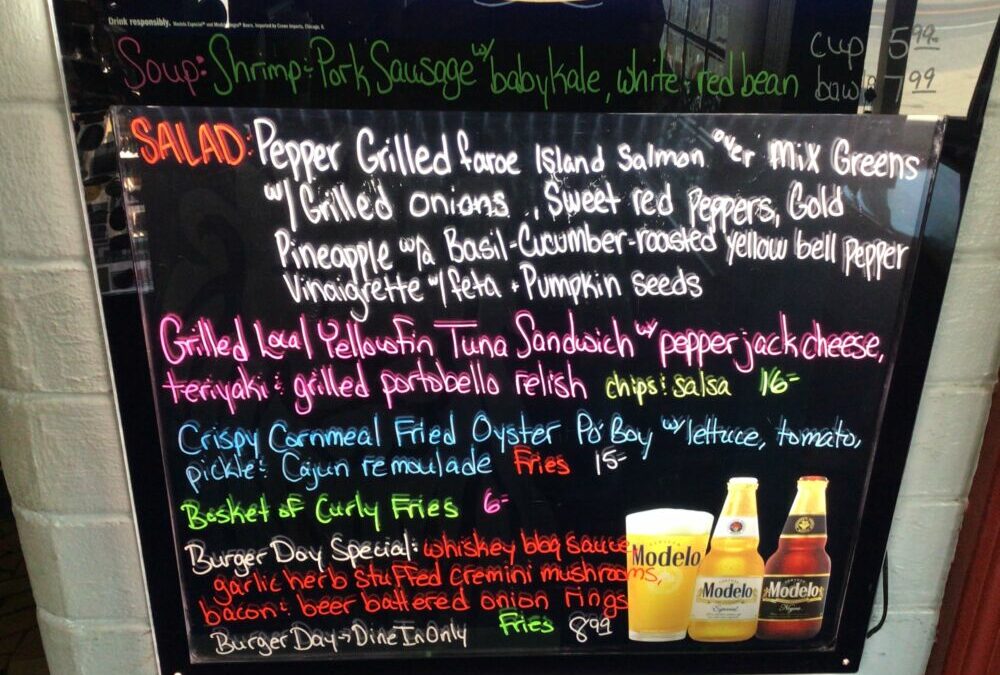 Drink responsibly. Modelo Especial® and Modelo Negra® Beers. Imported by Crown Imports, Chicago, IL
Soup: Shrimp & Pork Sausage w/ baby kale, white & red bean cup 5.99
bowl 7.99
SALAD: Pepper Grilled faroe Island Salmon over Mix Greens
w/ Grilled onions, Sweet red Peppers, Gold
Pineapple w/a Basil-Cucumber-roasted yellow bell pepper
Vinaigrette w/ feta + Pumpkin seeds
Grilled Local Yellowfin Tuna Sandwich w/ pepper jack cheese,
teriyaki & grilled portobello relish chips & salsa 16-
Crispy Cornmeal Fried Oyster Po'Boy w/ lettuce, tomato,
pickle & Cajun remoulade Fries 15-
Basket of Curly Fries 6-
Burger Day Special: whiskey bbq sauce
garlic herb stuffed cremini mushrooms,
bacon & beer battered onion rings
Burger Day → Dine In Only Fries 8.99
Modelo
Modelo
Especial
Modelo
Negra